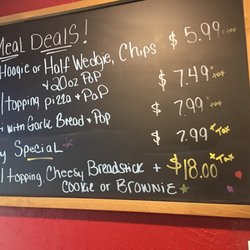 Meal Deals!
Hoagie or Half Wedgie, Chips $5.99 +tax
+ 20oz Pop
1 topping pizza + Pop $7.49 +tax
$7.99 +tax
+ with Garlic Bread + Pop $7.99 +tax
Special
1 topping Cheesy Breadstick + $18.00 +tax
Cookie or Brownie